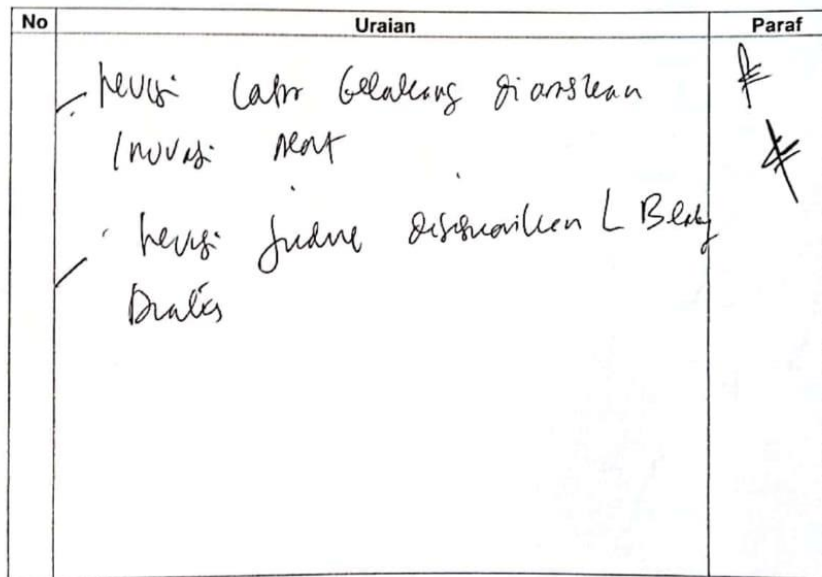 No Uraian Paraf
Revisi Latar Belakang di arahkan
Inovasi
Revisi Judul disesuaikan L Belakg